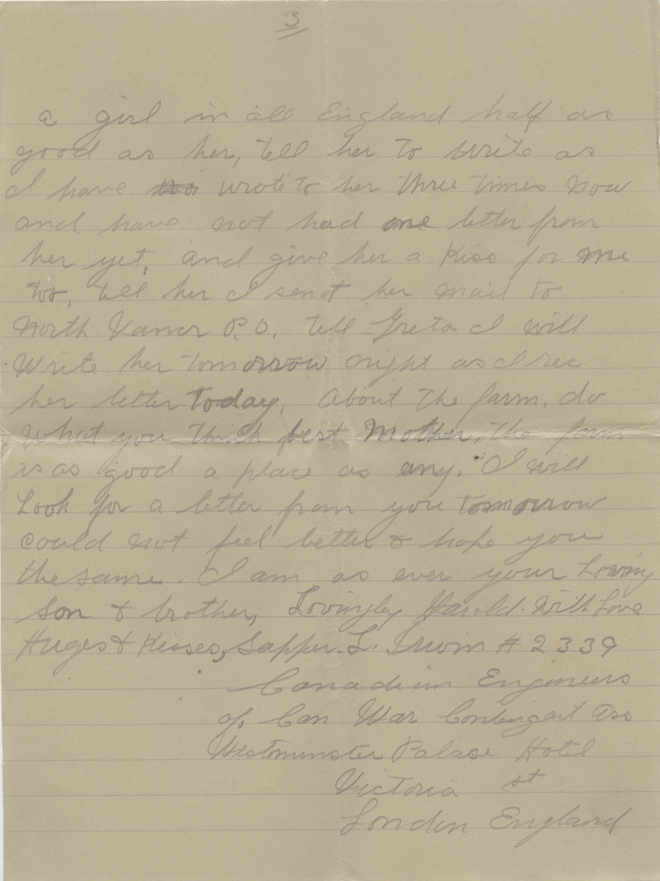 3
a girl in all England half as
good as her, tell her to write as
I have wrote to her three times now
and have not had one letter from
her yet, and give her a kiss for me
too, tell her I sent her mail to
North Vancr P.O. tell Greta I will
write her tomorrow night as I rec
her letter today. About the farm, do
what you think best Mother, the farm
is as good a place as any. I will
Look for a letter from you tomorrow
could not feel better & hope you
the same. I am as ever your Loving
son & brother, Lovingley Harold. With Love
Huges & Kisses, Sapper. L. Irwin # 2339
Canadian Engineers
c/o Can War Contingait Ass
Westminster Palase Hotel
Victoria st
London England